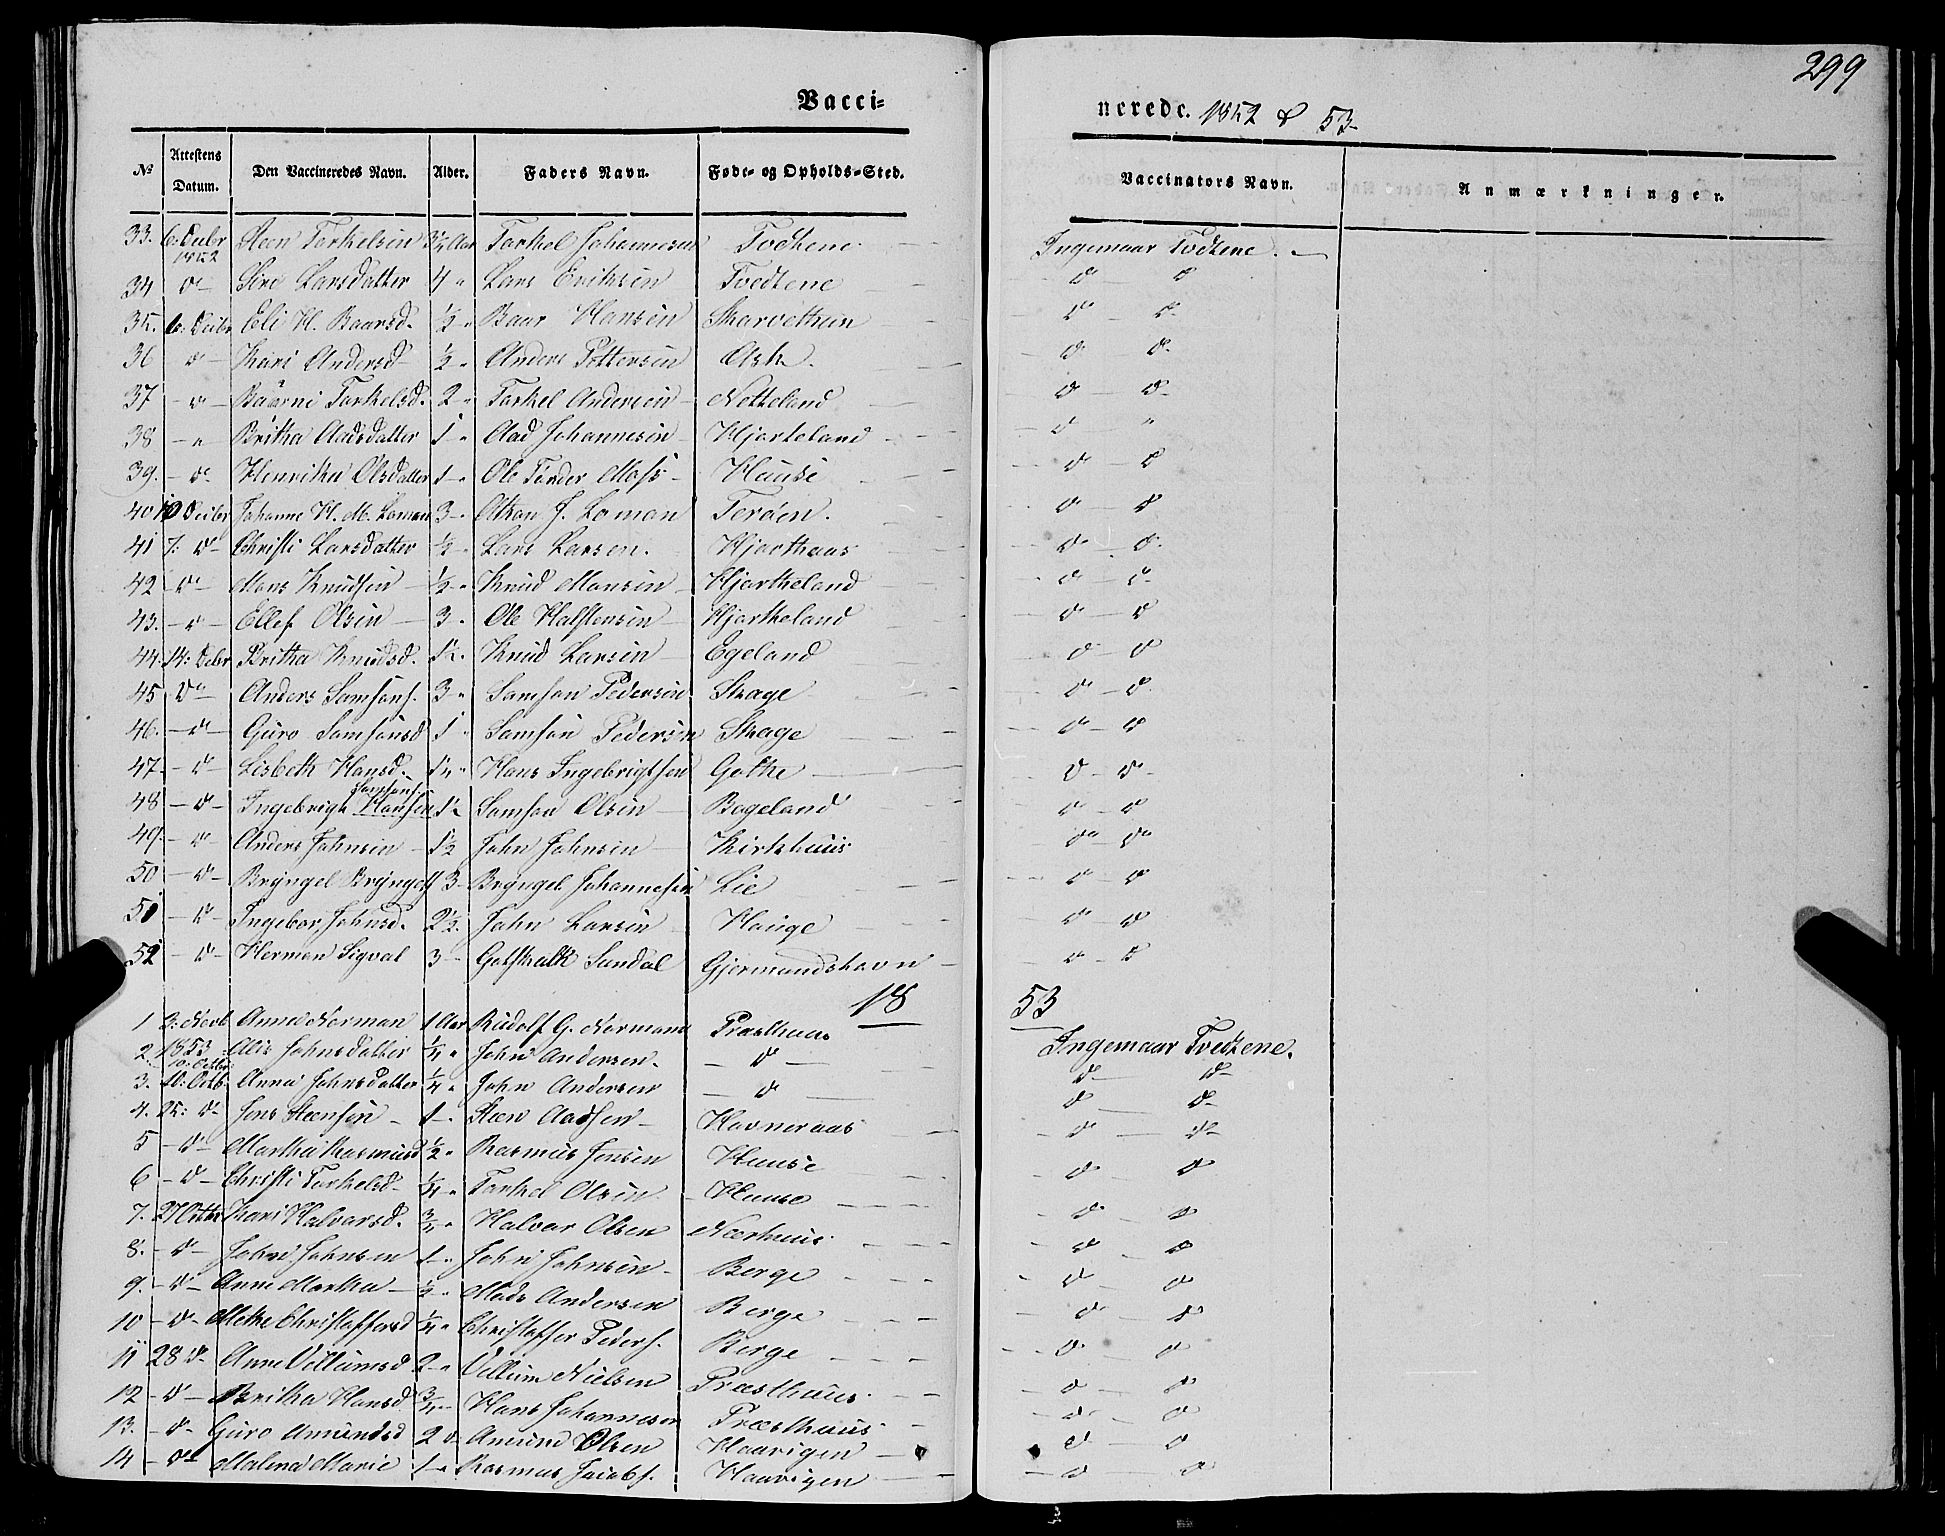 299
Vacci-
nerede. 1852 & 53
No Attestens Datum. Den Vaccineredes Navn. Alder. Faders Navn. Føde- og Opholds-Sted. Vaccinators Navn. Anmærkninger.
33. 6. Decbr 1852 Steen Torkelsen 3½ Aar Torkel Johannesen Tvedtene Ingemaar Tvedtene.
34 do Siri Larsdatter 4 " Lars Eriksen Tvedtene do do
35. 6: Decbr Eli H. Baarsd. ½ " Baar Hansen Skarvethun do do
36 do Kari Andersd ½ " Anders Pettersen Ask. do do
37 do Baarni Torkelsd. 2 " Torkel Andersen Netteland do do
38 " Britha Aadsdatter 1 " Aad Johannesen Hjorteland do "
39. do Henrika Olsdatter 1 Ole Tønder Moss Huuse do do
40 10 Decbr Johanne H. M. Loman 3 Loman Terøen. do do
41 7: do Christi Larsdatter ½ Lars Larsen. Hjorthaas do do
42 do Mons Knudsen ½ Knud Monsen Hjortheland do do
43. do Ellef Olsen 3 " Ole Halstensen Hjortheland do do
44. 14: Decbr Britha Knudsd. 1½ " Knud Larsen Egeland do do
45 do Anders Samsons. 3 " Samson Pedersen Skage do do
46. do Guro Samsonsd 1 " Samson Pedersen Skage do do
47. do Lisbeth Hansd. 1½ " Hans Ingebrigtsen Gothe do do
48 do Ingebrigt Hansen Samsons. 1½ Samson Olsen Bogeland do do
49. do Anders Johnsen 1½ John Johnsen Kirkhuus do do
50 do Bryngel Bryngels 3 Bryngel Johannesen Lie do do
51 do Ingebor Johnsd. 2½ John Larsen Hauge do do
52 do Herman Sigval 3 Gotskalk Sandal Gjermundshavn do do
18 53
1 3: Anne Norman 1 Aar Rudolf G. Normann Præsthuus Ingemaar Tvedtene.
2. 1853 10. Octbr Alis Johnsdatter ¼ " John Andersen. do do do
3. 10: Octb. Anna Johnsdatter ¼ " John Andersen do do do
4. 25: do Jens Steensen 1 Steen Aadsen Havneraas do do
5 do Martha Rasmusd ½ " Rasmus Jensen Huuse do do
6 do Christi Torkelsd ¼ " Torkel Olsen Huuse do do
7. 27 Octbr Kari Halvorsd. ¾ " Halvor Olsen Nærhuus do do
8. do John Johnsen 1 " John Johnsen Berge do do
9. do Anne Martha ½ " Mads Andersen Berge do do
10 do Methe Christoffersd ¼ " Christoffer Peders. Berge do do
11 28 do Anne Villumsd 2 " Villum Nielsen Præsthuus do do
12 do Britha Hansd ¾ " Hans Johannesen Præsthuus do do
13. do Guro Amundsd 2 do Amund Olsen Haavigen do do
14 do Malena Marie 1 " Rasmus Jacobs. Haavigen do do